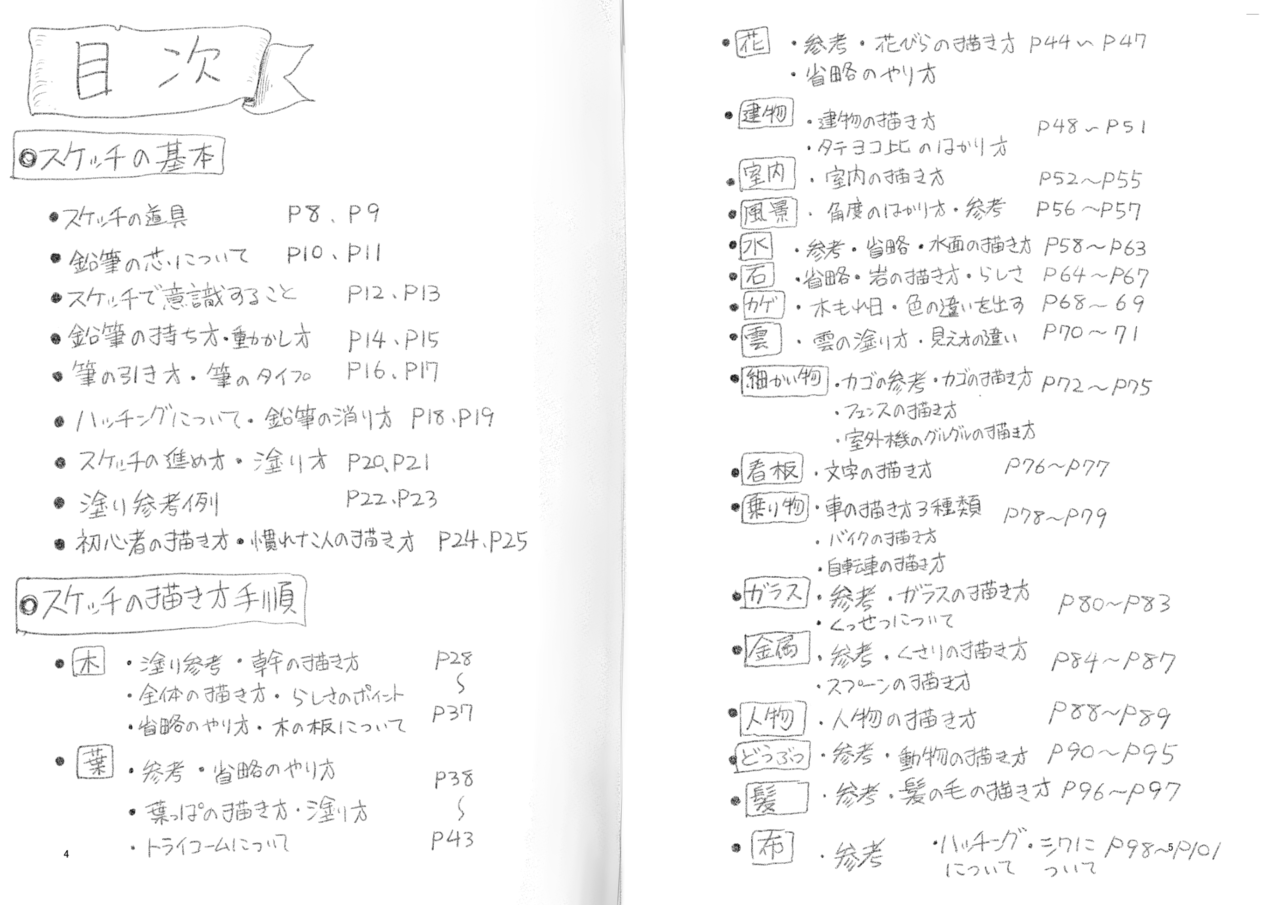 目次
◎スケッチの基本
●スケッチの道具 P8、P9
●鉛筆の芯について P10、P11
●スケッチで意識すること P12、P13
●鉛筆の持ち方・動かし方 P14、P15
●筆の引き方・筆のタイプ P16、P17
●ハッチングについて・鉛筆の消り方 P18、P19
●スケッチの進め方・塗り方 P20、P21
●塗り参考例 P22、P23
●初心者の描き方・慣れた人の描き方 P24、P25
◎スケッチの描き方手順
●木 ・塗り参考・幹の描き方 P28
・全体の描き方・らしさのポイント 〜
・省略のやり方・木の板について P37
●葉 ・参考・省略のやり方 P38
・葉っぱの描き方・塗り方 〜
・トライコームについて P43
4
●花 ・参考・花びらの描き方 P44〜P47
・省略のやり方
●建物 ・建物の描き方 P48〜P51
・タテヨコ比のはかり方
●室内 ・室内の描き方 P52〜P55
●風景 ・角度のはかり方・参考 P56〜P57
●水 ・参考・省略・水面の描き方 P58〜P63
●石 ・省略・岩の描き方・らしさ P64〜P67
●カゲ ・木もれ日・色の違いを出す P68〜69
●雲 ・雲の塗り方・見え方の違い P70〜71
●細かい物 ・カゴの参考・カゴの描き方 P72〜P75
・フェンスの描き方
・室外機のグルグルの描き方
●看板 ・文字の描き方 P76〜P77
●乗り物 ・車の描き方3種類 P78〜P79
・バイクの描き方
・自転車の描き方
●ガラス ・参考・ガラスの描き方 P80〜P83
・くっせつについて
●金属 ・参考・くさりの描き方 P84〜P87
・スプーンの描き方
●人物 ・人物の描き方 P88〜P89
●どうぶつ ・参考・動物の描き方 P90〜P95
●髪 ・参考・髪の毛の描き方 P96〜P97
●布 ・参考 ・ハッチングについて ・シワについて P98〜P101
5